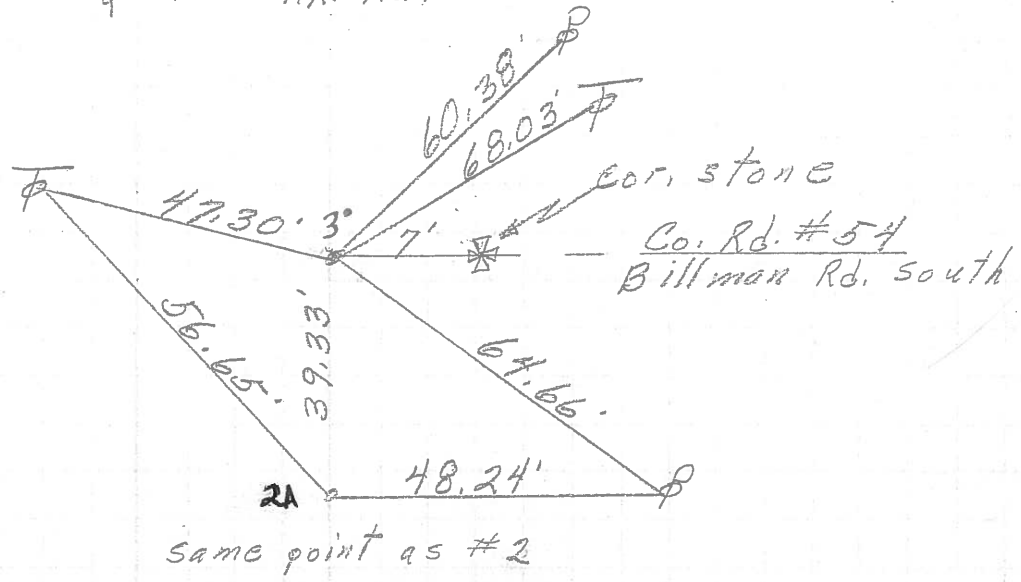 60.38'
68.03'
cor. stone
47.30'
3°
7'
Co. Rd. #54
Billman Rd. South
56.65'
39.33'
64.66'
48.24'
2A
same point as #2